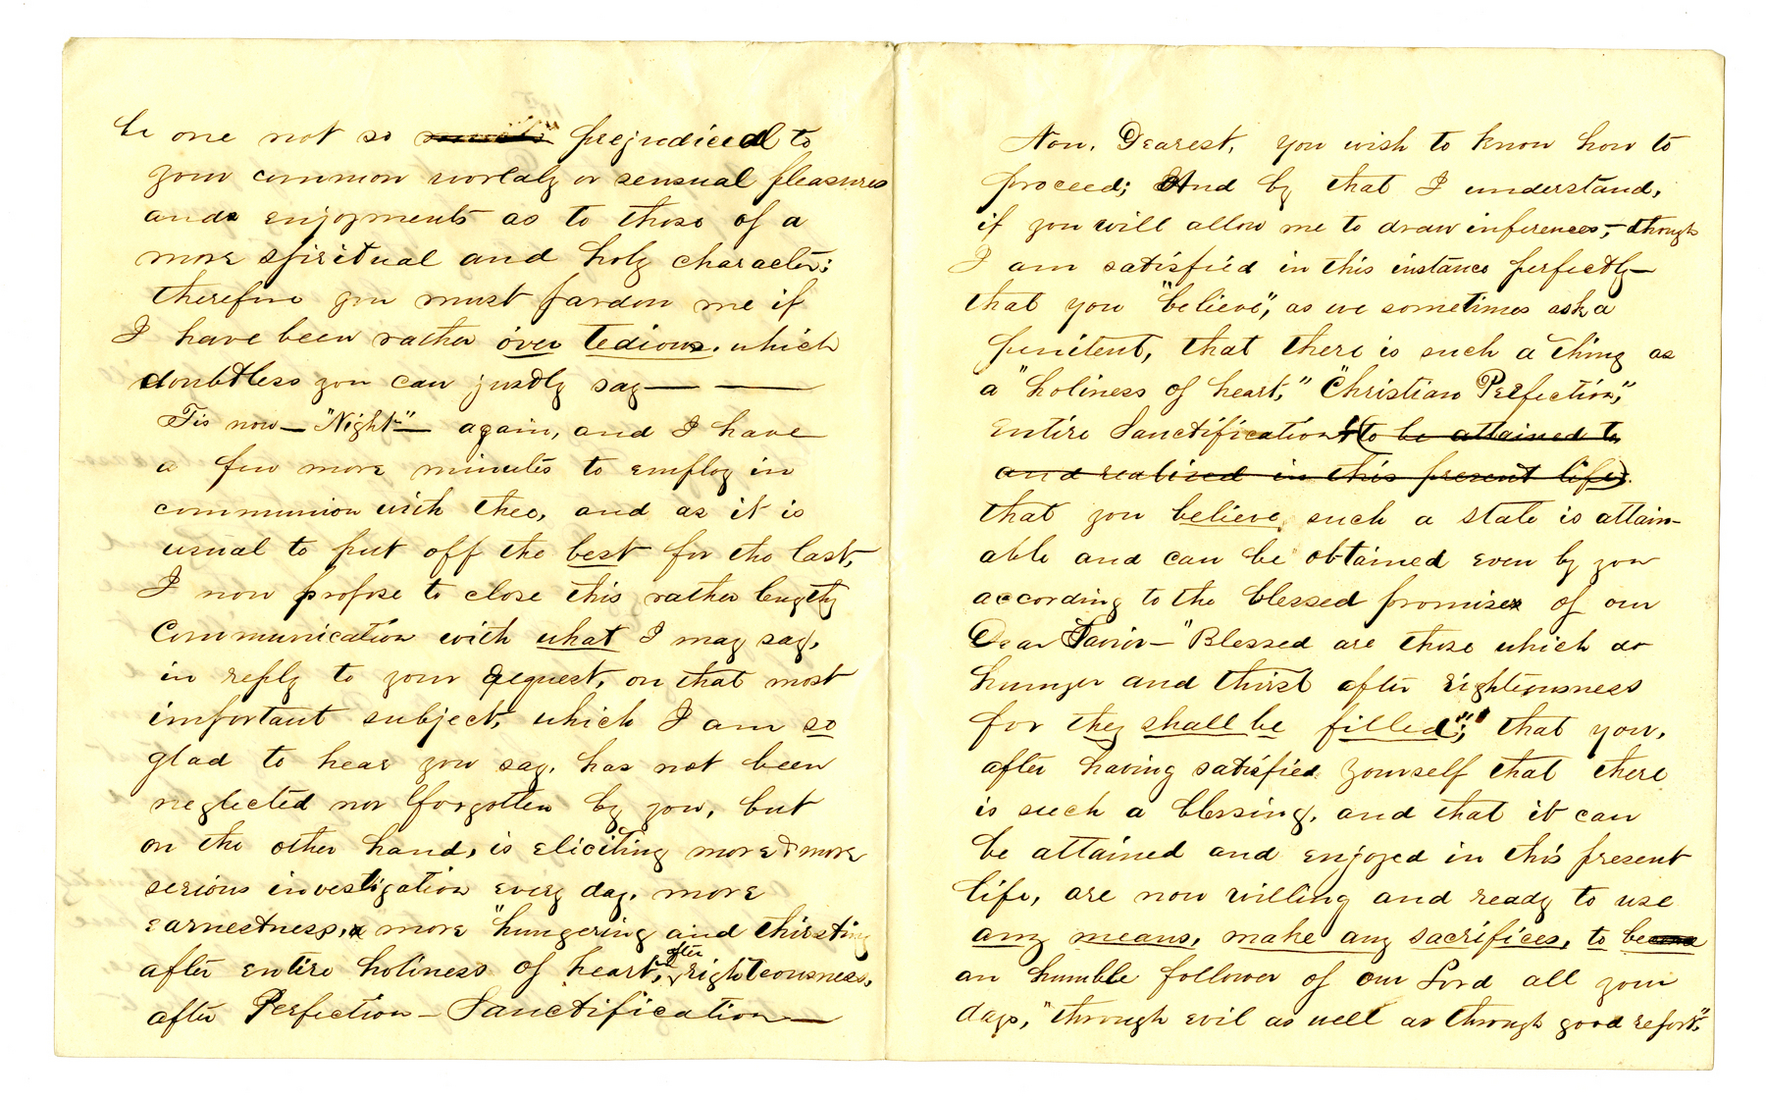 be one not so prejudiced to
your common worldly or sensual pleasures
and enjoyments as to those of a
more spiritual and holy character;
therefore you must pardon me if
I have been rather over tedious, which
doubtless you can justly say — —
Tis now — "Night" — again, and I have
a few more minutes to employ in
communion with thee, and as it is
usual to put off the best for the last,
I now propose to close this rather lengthy
Communication with what I may say,
in reply to your request, on that most
important subject, which I am so
glad to hear you say, has not been
neglected nor forgotten by you, but
on the other hand, is eliciting more & more
serious investigation every day, more
earnestness, more "hungering and thirsting
after entire holiness of heart," after righteousness,
after Perfection — Sanctification —
Now, Dearest, you wish to know how to
proceed; And by that I understand,
if you will allow me to draw inferences, — though
I am satisfied in this instance perfectly —
that you "believe", as we sometimes ask a
penitent, that there is such a thing as
a "holiness of heart," "Christian Perfection,"
entire Sanctification (to be attained to
and realized in this present life).
that you believe, such a state is attain-
able and can be obtained even by you
according to the blessed promise of our
Dear Savior — "Blessed are those which do
hunger and thirst after righteousness
for they shall be filled"; that you,
after having satisfied yourself that there
is such a blessing, and that it can
be attained and enjoyed in this present
life, are now willing and ready to use
any means, make any sacrifices, to be
an humble follower of our Lord all your
days, "through evil as well as through good report,"